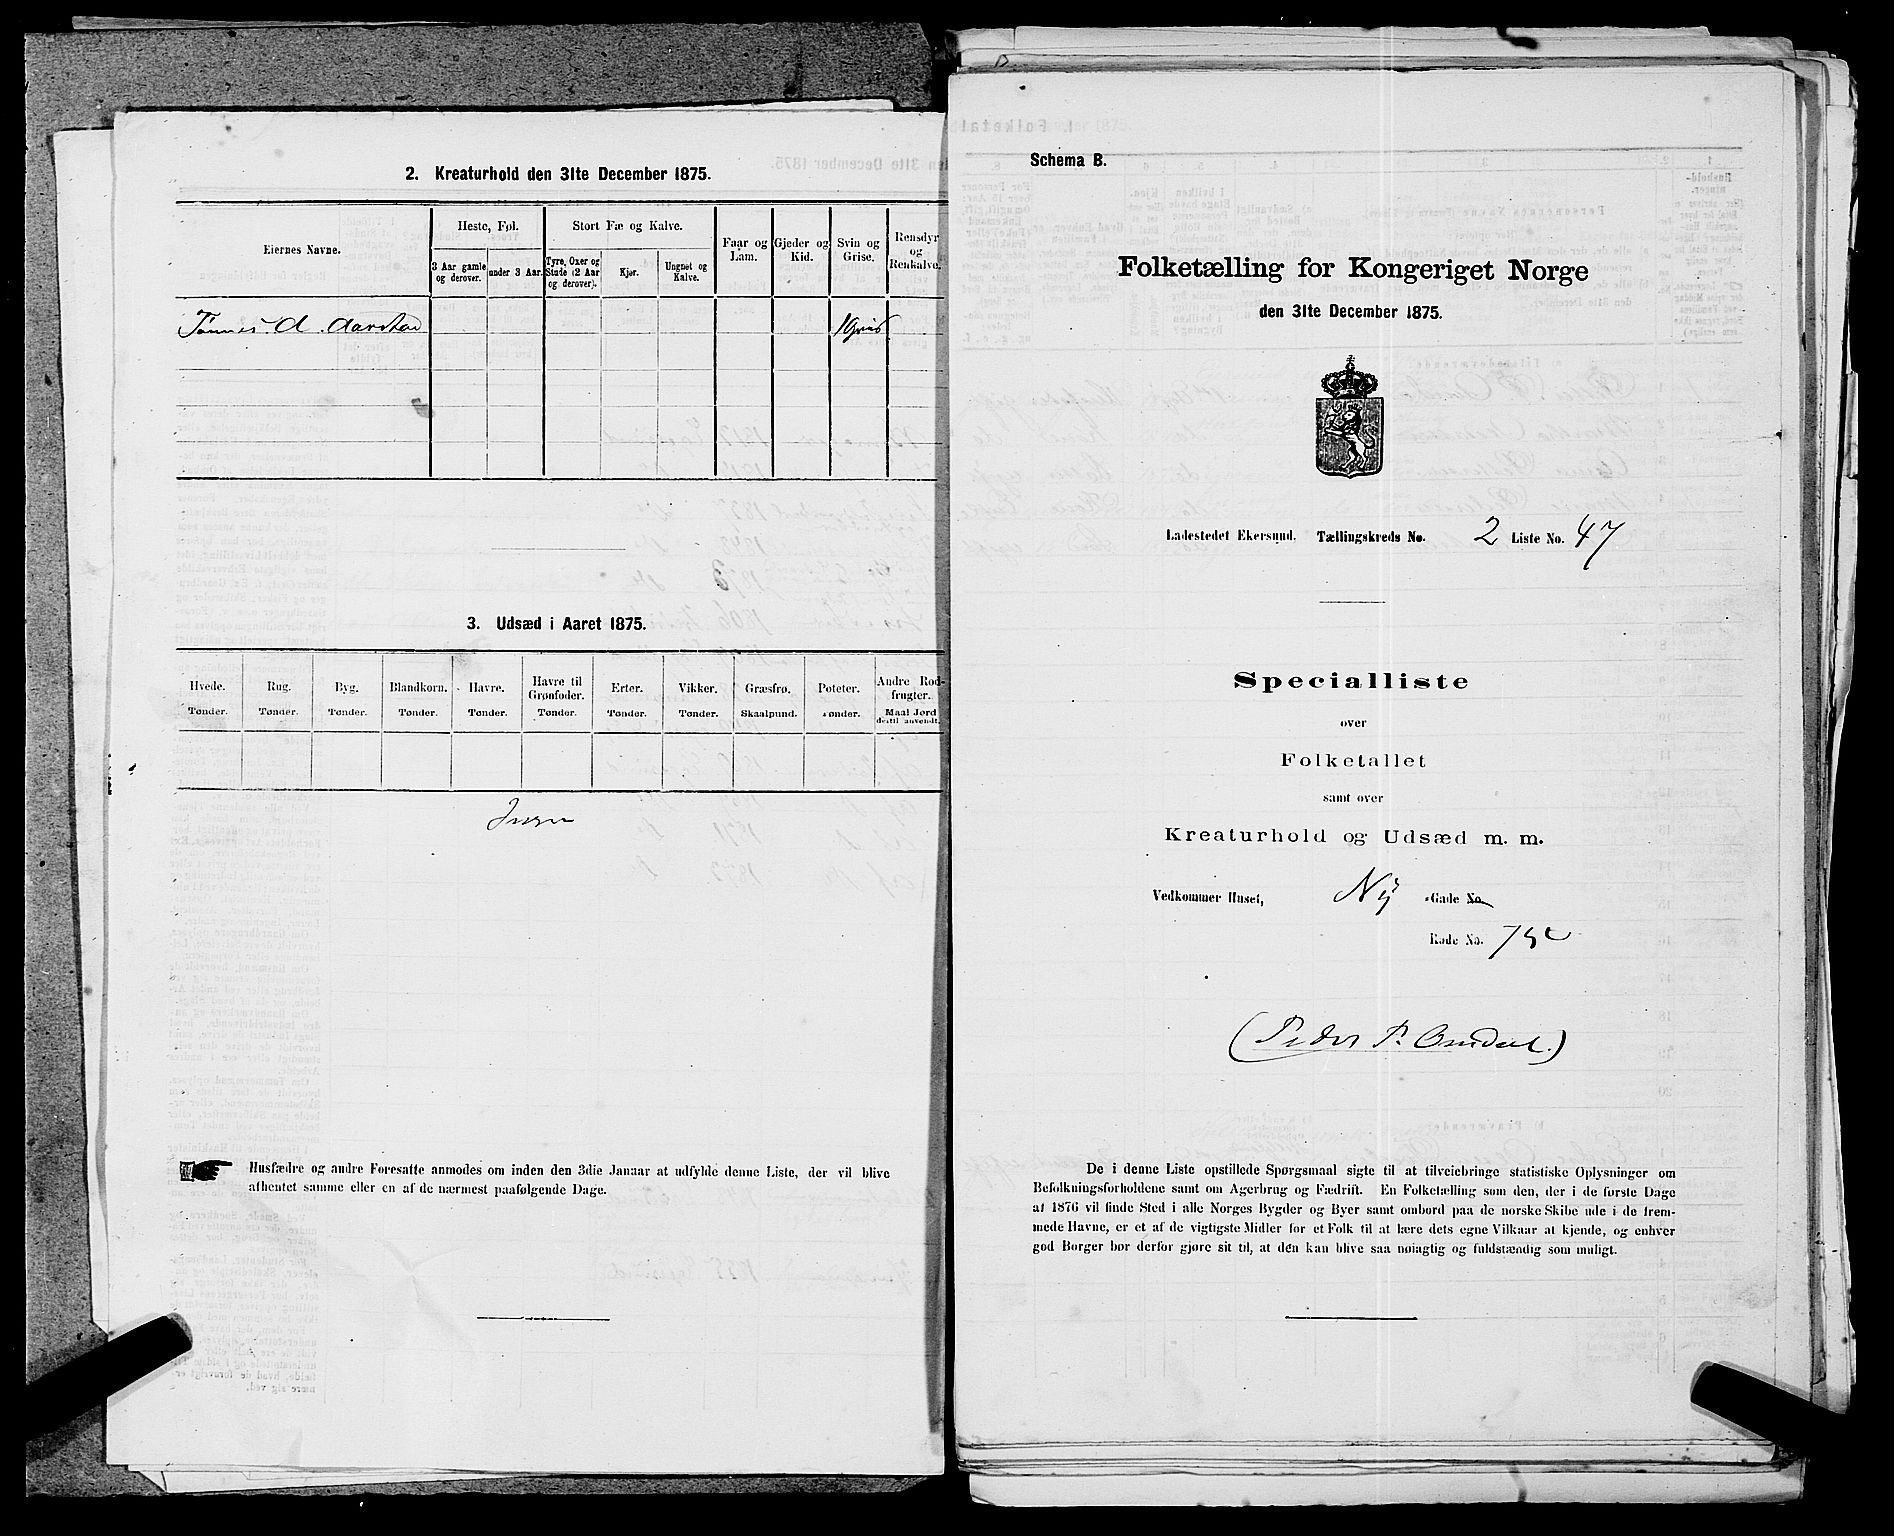 2. Kreaturhold den 31te December 1875.
Eiernes Navne.
Heste, Føl.
Stort Fæ og Kalve.
Faar og Lam.
Gjeder og Kid.
Svin og Grise.
Rensdyr og Renkalve.
3 Aar gamle og derover.
under 3 Aar.
Tyre, Oxer og Stude (2 Aar og derover).
Kjør.
Ungnet og Kalve.
Tønnes A. Aarstad
1 Gris
3. Udsæd i Aaret 1875.
Hvede.
Rug.
Byg.
Blandkorn.
Havre.
Havre til Grønfoder.
Erter.
Vikker.
Græsfrø.
Poteter.
Andre Rodfrugter.
Tønder.
Tønder.
Tønder.
Tønder.
Tønder.
Tønder.
Tønder.
Tønder.
Skaalpund.
Tønder.
Maal Jord dertil anvendt.
Ingen
Husfædre og andre Foresatte anmodes om inden den 3die Januar at udfylde denne Liste, der vil blive
afhentet samme eller en af de nærmest paafølgende Dage.
Schema B.
Folketælling for Kongeriget Norge
den 31te December 1875.
Ladestedet Ekersund. Tællingskreds No. 2 Liste No. 47
Specialliste
over
Folketallet
samt over
Kreaturhold og Udsæd m. m.
Vedkommer Huset, Ny Gade No.
Rode No.
(Peder P. Omdal.)
De i denne Liste opstillede Spørgsmaal sigte til at tilveiebringe statistiske Oplysninger om
Befolkningsforholdene samt om Agerbrug og Fædrift. En Folketælling som den, der i de første Dage
af 1876 vil finde Sted i alle Norges Bygder og Byer samt ombord paa de norske Skibe ude i de frem-
mede Havne, er et af de vigtigste Midler for et Folk til at lære dets egne Vilkaar at kjende, og enhver
god Borger bør derfor gjøre sit til, at den kan blive saa nøiagtig og fuldstændig som muligt.